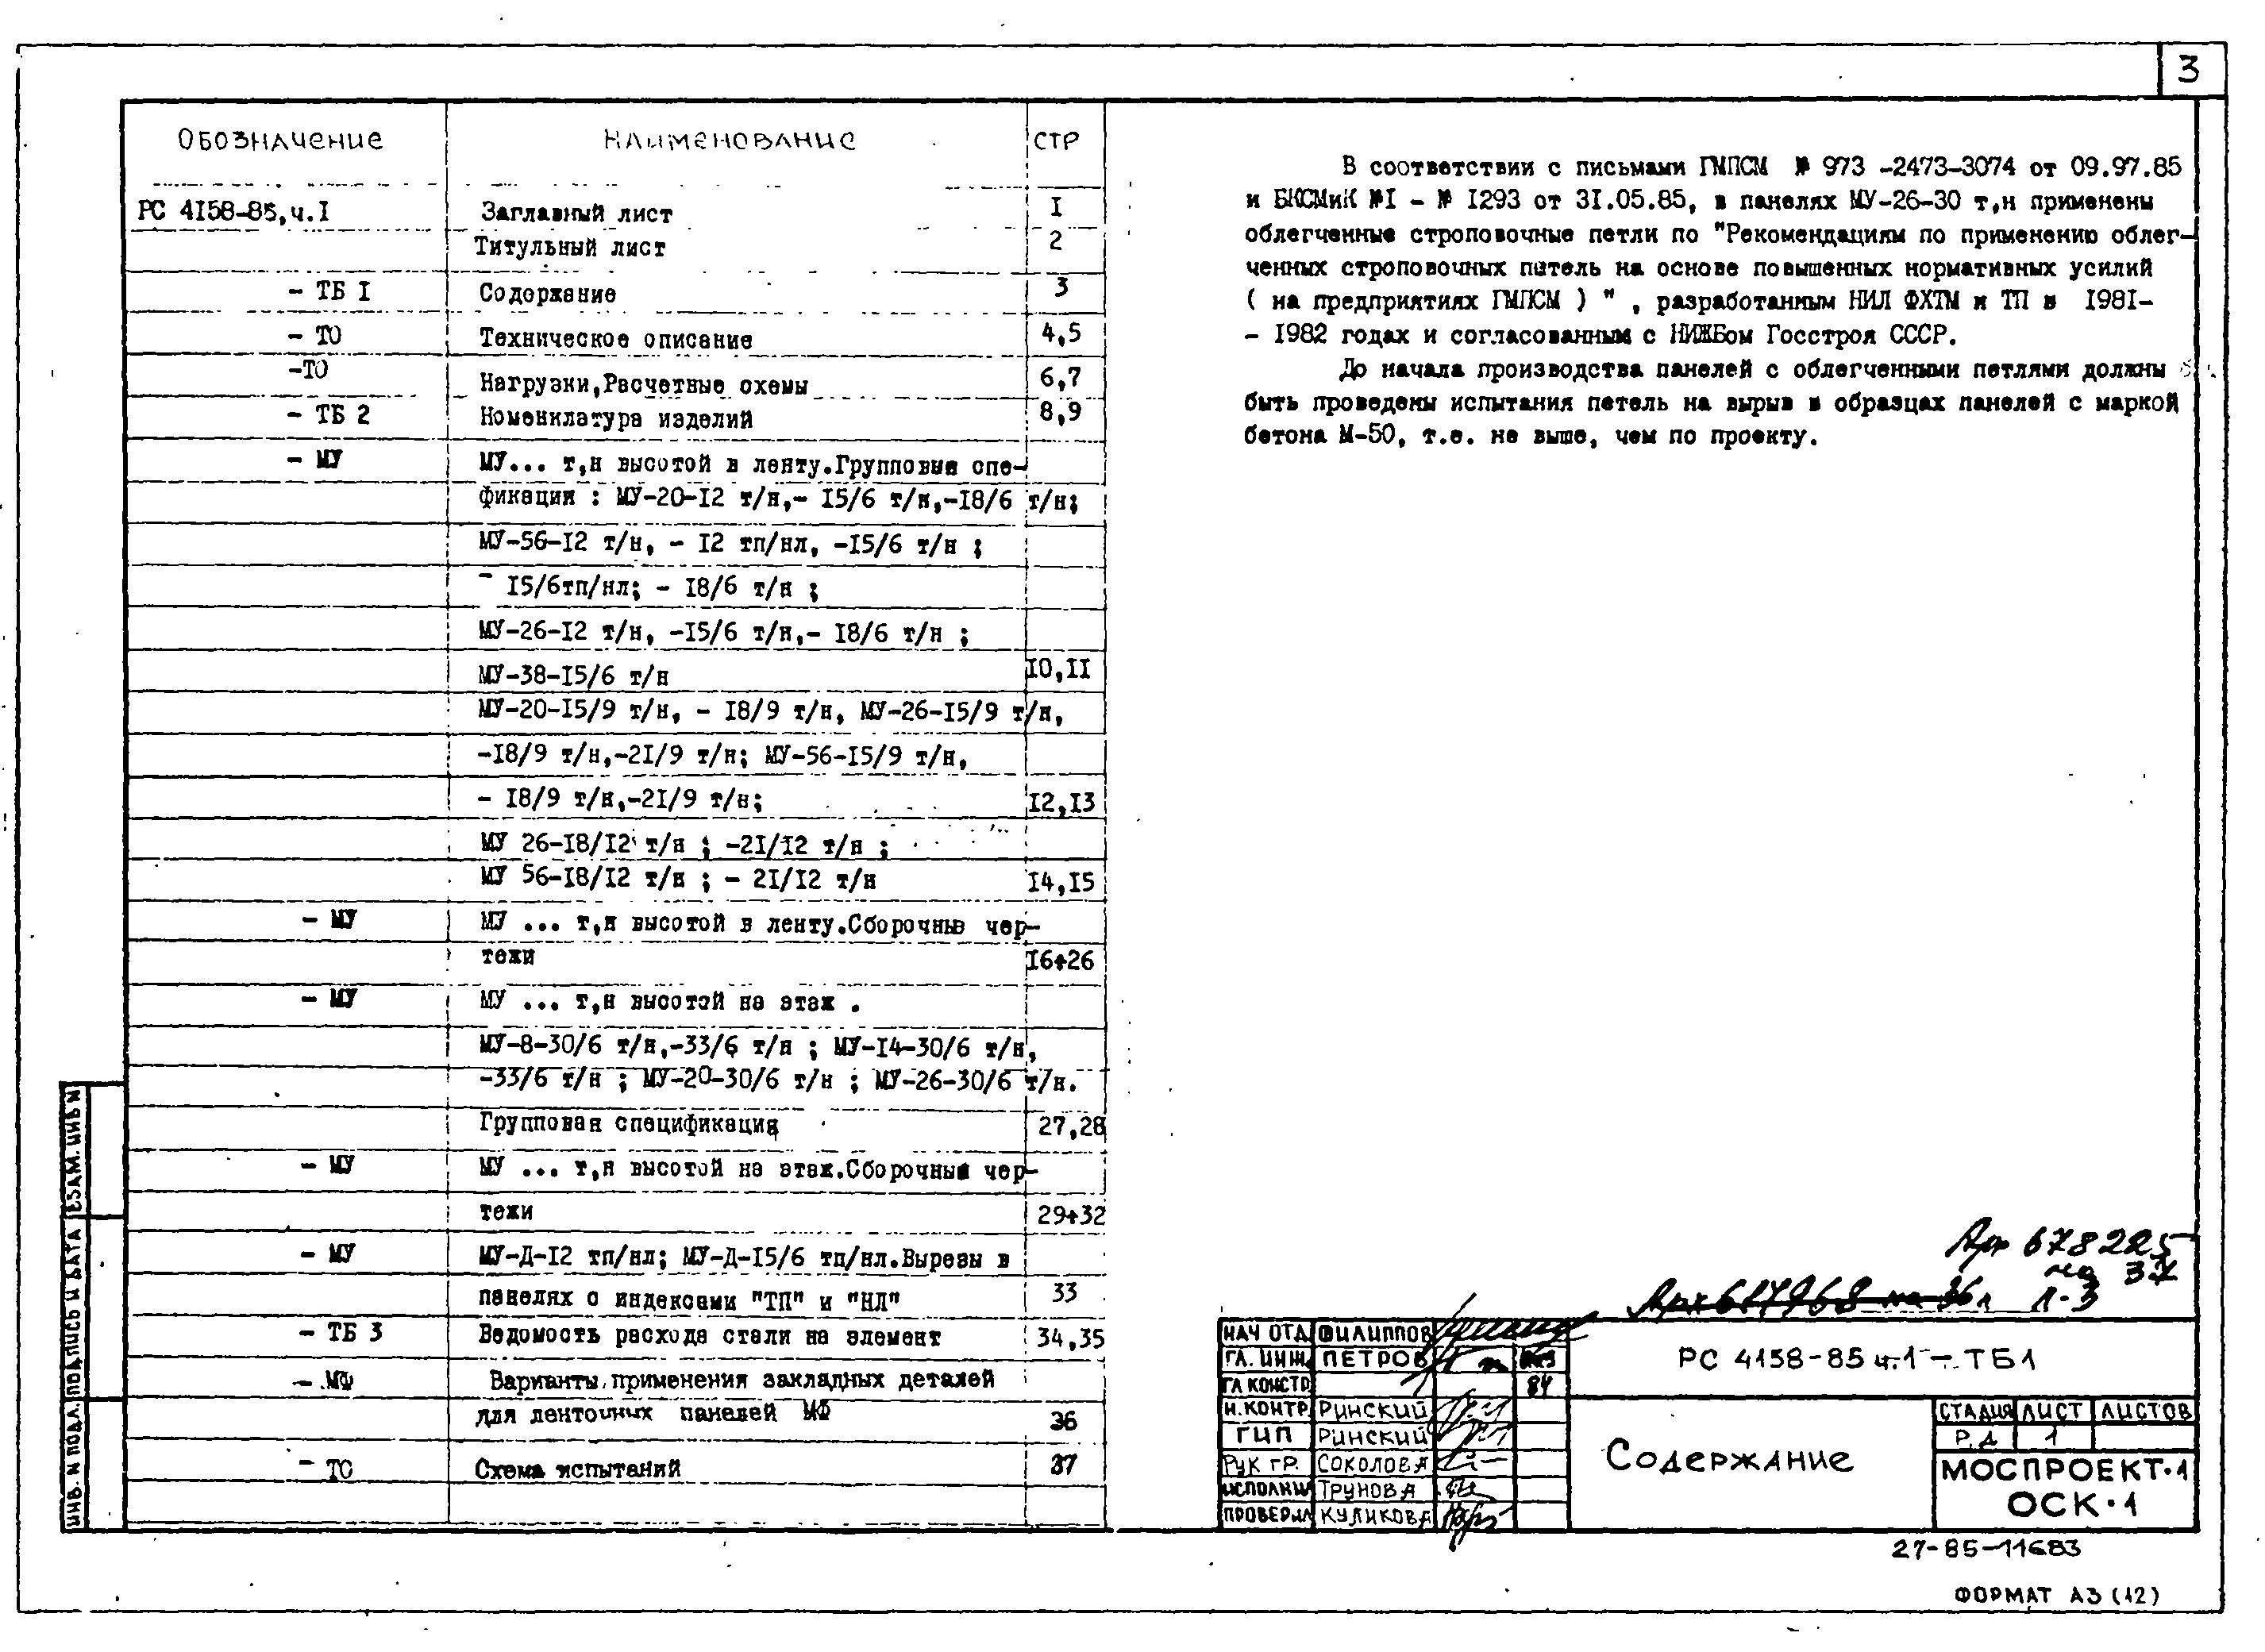 3
ОБОЗНАЧЕНИЕ НАИМЕНОВАНИЕ СТР
РС 4158-85,ч.I Заглавный лист I
Титульный лист 2
- ТБ I Содержание 3
- ТО Техническое описание 4,5
-ТО Нагрузки,Расчетные схемы 6,7
- ТБ 2 Номенклатура изделий 8,9
- МУ МУ... т,н высотой в ленту.Групповые спе-
фикации : МУ-20-I2 т/н,- I5/6 т/н,-I8/6 т/н;
МУ-56-I2 т/н, - I2 тп/нл, -I5/6 т/н ;
- I5/6тп/нл; - I8/6 т/н ;
МУ-26-I2 т/н, -I5/6 т/н,- I8/6 т/н ;
МУ-38-I5/6 т/н I0,II
МУ-20-I5/9 т/н, - I8/9 т/н, МУ-26-I5/9 т/н,
-I8/9 т/н,-2I/9 т/н; МУ-56-I5/9 т/н,
- I8/9 т/н,-2I/9 т/н; I2,I3
МУ 26-I8/I2 т/н ; -2I/I2 т/н ;
МУ 56-I8/I2 т/н ; - 2I/I2 т/н I4,I5
- МУ МУ ... т,н высотой в ленту.Сборочные чер-
тежи I6÷26
- МУ МУ ... т,н высотой на этаж .
МУ-8-30/6 т/н,-33/6 т/н ; МУ-I4-30/6 т/н,
-33/6 т/н ; МУ-20-30/6 т/н ; МУ-26-30/6 т/н.
Групповая спецификация 27,28
- МУ МУ ... т,н высотой на этаж.Сборочные чер-
тежи 29÷32
- МУ МУ-Д-I2 тп/нл; МУ-Д-I5/6 тп/нл.Вырезы в
панелях с индексами "ТП" и "НЛ" 33
- ТБ 3 Ведомость расхода стали на элемент 34,35
- МФ Варианты применения закладных деталей
для ленточных панелей МФ 36
- ТО Схема испытаний 37
В соответствии с письмами ГМПСМ № 973 -2473-3074 от 09.97.85
и БКСМиК №I - № I293 от 3I.05.85, в панелях МУ-26-30 т,н применены
облегченные строповочные петли по "Рекомендациям по применению облег-
ченных строповочных петель на основе повышенных нормативных усилий
( на предприятиях ГМПСМ ) " , разработанным НИЛ ФХТМ и ТП в I98I-
- I982 годах и согласованным с НИЖБом Госстроя СССР.
До начала производства панелей с облегченными петлями должны
быть проведены испытания петель на вырыв в образцах панелей с маркой
бетона М-50, т.е. не выше, чем по проекту.
Арх 678225
на 37
Арх 617968 на 36л л-3
НАЧ ОТД ФИЛИППОВ
ГЛ. ИНЖ. ПЕТРОВ
ГЛ КОНСТР 84
Н.КОНТР РИНСКИЙ
ГИП РИНСКИЙ
РУК ГР. СОКОЛОВА
ИСПОЛНИЛ ТРУНОВА
ПРОВЕРИЛ КУЛИКОВА
РС 4158-85 ч.1 - ТБ1
СОДЕРЖАНИЕ
СТАДИЯ ЛИСТ ЛИСТОВ
Р.Д 1
МОСПРОЕКТ-1
ОСК-1
27-85-11683
ФОРМАТ А3 (12)
ИНВ. N ПОДЛ. ПОДПИСЬ И ДАТА ВЗАМ. ИНВ N